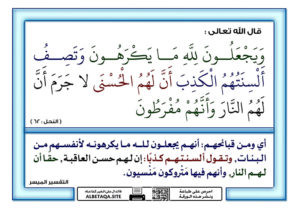 قال الله تعالى :
وَيَجْعَلُونَ لِلَّهِ مَا يَكْرَهُونَ وَتَصِفُ
أَلْسِنَتُهُمُ الْكَذِبَ أَنَّ لَهُمُ الْحُسْنَى لَا جَرَمَ أَنَّ
لَهُمُ النَّارَ وَأَنَّهُم مُّفْرَطُونَ
(النحل : ٦٢)
أي ومن قبائحهم: أنهم يجعلون لله ما يكرهونه لأنفسهم من
البنات، وتقول ألسنتهم كذبًا: إن لهم حسن العاقبة، حقا أن
لهم النار، وأنهم فيها متروكون منسيون.
التفسير الميسر
احرص على طباعة
ونشر هذه الورقة
ALBETAQA.SITE